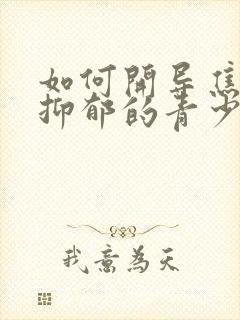 如何開导焦
抑郁的青少
我意為天